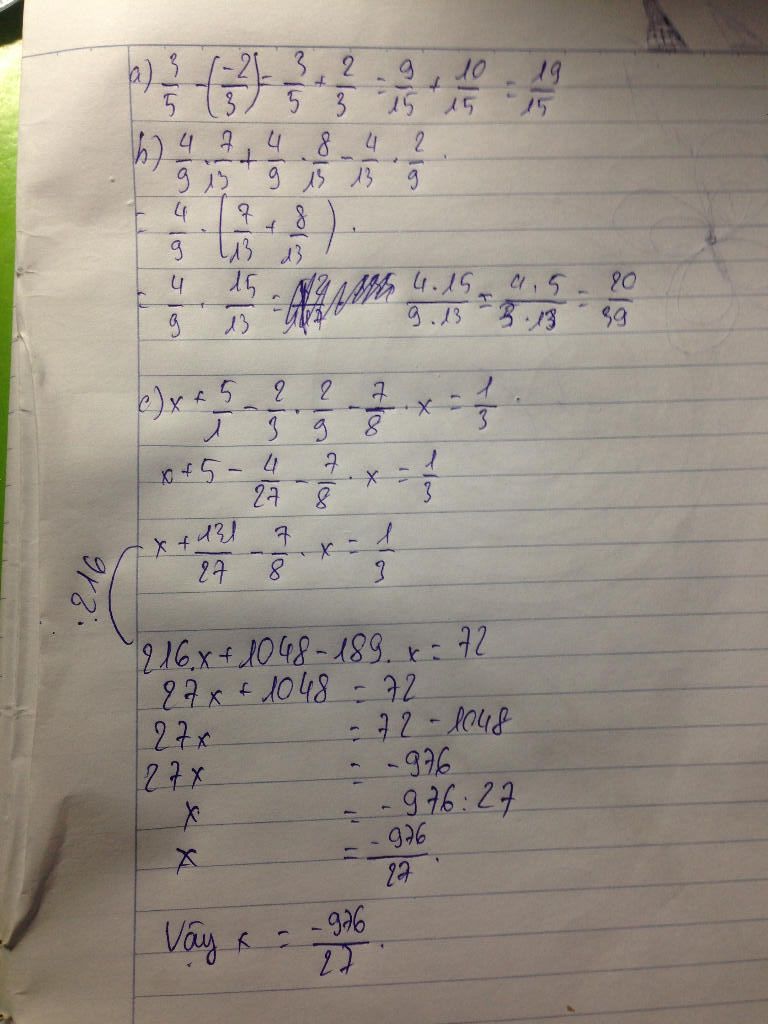 a) 3/5 - (-2/3) = 3/5 + 2/3 = 9/15 + 10/15 = 19/15
b) 4/9 . 7/13 + 4/9 . 8/13 - 4/13 . 2/9 .
= 4/9 . (7/13 + 8/13) .
= 4/9 . 15/13 = 4.15/9.13 = 4.5/3.13 = 20/39
c) x + 5/1 - 2/3 . 2/9 - 7/8 . x = 1/3 .
x + 5 - 4/27 - 7/8 . x = 1/3
x + 131/27 - 7/8 . x = 1/3
:216
216.x + 1048 - 189. x = 72
27x + 1048 = 72
27x = 72 - 1048
27x = -976
x = -976 : 27
x = -976/27 .
Vậy x = -976/27 .